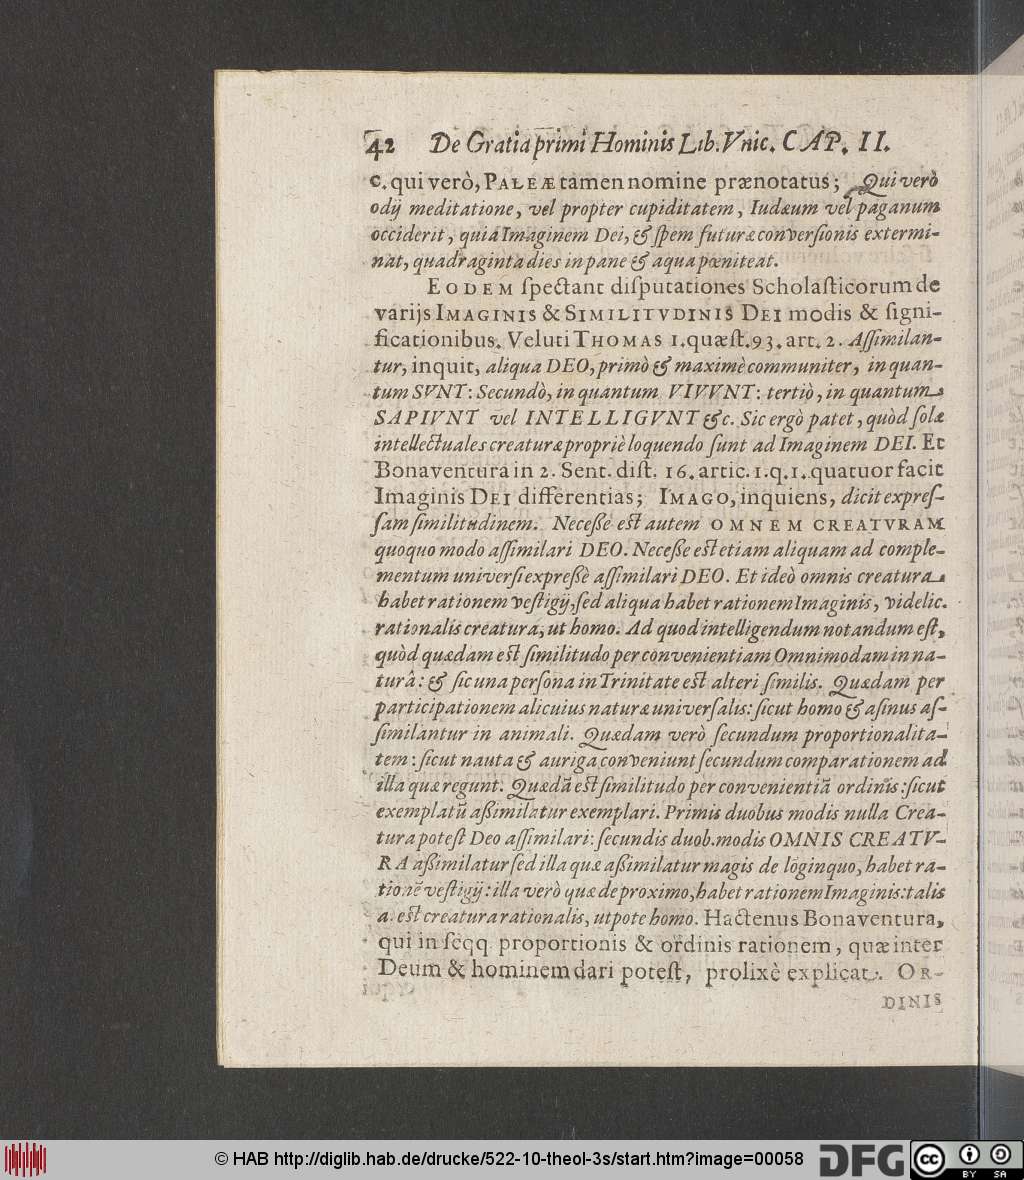 42 De Gratia primi Hominis Lib. Vnic. CAP. II.
c. qui verò, PALEÆ tamen nomine prænotatus; Qui verò
odij meditatione, vel propter cupiditatem, Iudæum vel paganum
occiderit, quia Imaginem Dei, & ſpem futuræ converſionis extermi-
nat, quadraginta dies in pane & aqua pœniteat.
EODEM ſpectant diſputationes Scholaſticorum de
varijs IMAGINIS & SIMILITVDINIS DEI modis & ſigni-
ficationibus. Veluti THOMAS 1. quæſt. 93. art. 2. Aſſimilan-
tur, inquit, aliqua DEO, primò & maximè communiter, in quan-
tum SVNT: Secundò, in quantum VIVVNT: tertiò, in quantum
SAPIVNT vel INTELLIGVNT &c. Sic ergò patet, quòd ſolæ
intellectuales creaturæ propriè loquendo ſunt ad Imaginem DEI. Et
Bonaventura in 2. Sent. diſt. 16. artic. 1. q. 1. quatuor facit
Imaginis DEI differentias; IMAGO, inquiens, dicit expreſ-
ſam ſimilitudinem. Neceße eſt autem OMNEM CREATVRAM
quoquo modo aſſimilari DEO. Neceße eſt etiam aliquam ad comple-
mentum univerſi expreßè aſſimilari DEO. Et ideò omnis creatura
habet rationem veſtigij, ſed aliqua habet rationem Imaginis, videlic.
rationalis creatura, ut homo. Ad quod intelligendum notandum eſt,
quòd quædam eſt ſimilitudo per convenientiam Omnimodam in na-
turâ: & ſic una perſona in Trinitate eſt alteri ſimilis. Quædam per
participationem alicuius naturæ univerſalis: ſicut homo & aſinus aſ-
ſimilantur in animali. Quædam verò ſecundum proportionalita-
tem: ſicut nauta & auriga conveniunt ſecundum comparationem ad
illa quæ regunt. Quædā eſt ſimilitudo per convenientiā ordinis: ſicut
exemplatū aßimilatur exemplari. Primis duobus modis nulla Crea-
tura poteſt Deo aſſimilari: ſecundis duob. modis OMNIS CREATV-
RA aßimilatur ſed illa quæ aßimilatur magis de lōginquo, habet ra-
tionē veſtigij: illa verò quæ de proximo, habet rationem Imaginis: talis
a. eſt creatura rationalis, utpote homo. Hactenus Bonaventura,
qui in ſeqq proportionis & ordinis rationem, quæ inter
Deum & hominem dari poteſt, prolixè explicat. OR-
DINIS
© HAB http://diglib.hab.de/drucke/522-10-theol-3s/start.htm?image=00058
DFG
cc
BY SA